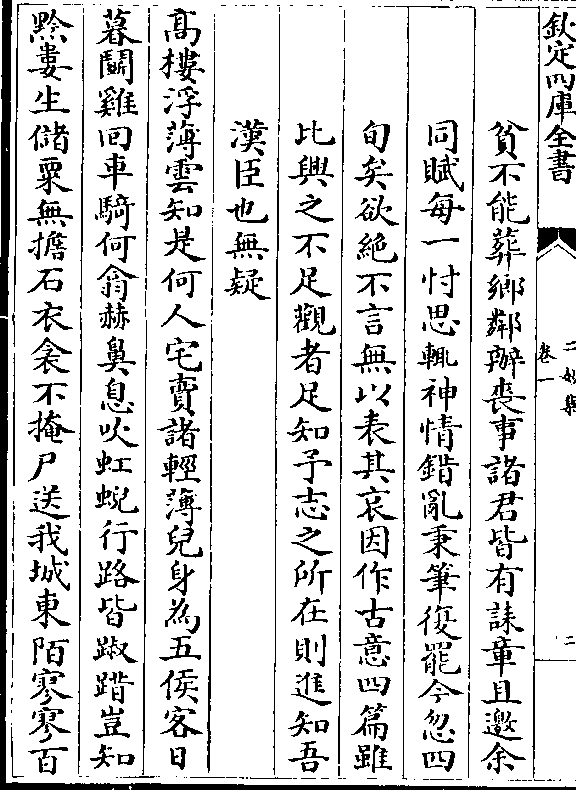 欽定四庫全書
卷一
二妙集
二
貧不能葬鄉鄰辦喪事諸君皆有誄章且邀余
同賦每一忖思輒神情錯亂秉筆復罷今忽四
旬矣欲絶不言無以表其哀因作古意四篇雖
比興之不足觀者足知予志之所在則進知吾
漢臣也無疑
高樓浮薄雲知是何人宅賣諸輕薄兒身為五侯客日
暮鬬雞回車騎何翕赫鼻息吹虹蜺行路皆踧踖豈知
黔婁生儲粟無擔石衣衾不掩尸送我城東陌寥寥百